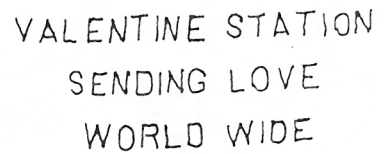 VALENTINE STATION
SENDING LOVE
WORLD WIDE